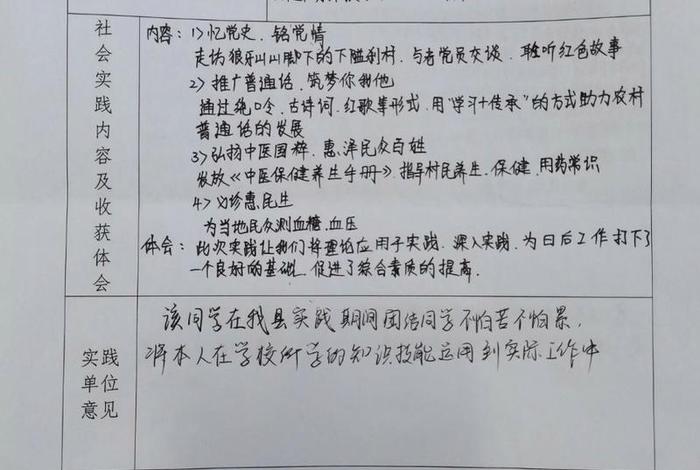 社会实践内容及收获体会
内容：1）忆党史、铭党情
走访狼牙山山脚下的下隘刹村，与老党员交谈，聆听红色故事
2）推广普通话、筑梦你我他
通过绕口令、古诗词、红歌等形式，用“学习+传承”的方式助力农村
普通话的发展
3）弘扬中医国粹、惠泽民众百姓
发放《中医保健养生手册》，指导村民养生、保健、用药常识
4）义诊惠民生
为当地民众测血糖、血压
体会：此次实践让我们将理论应用于实践，深入实践，为日后工作打下了
一个良好的基础，促进了综合素质的提高。
实践单位意见
该同学在我县实践期间团结同学不怕苦不怕累，
将本人在学校所学的知识技能运用到实际工作中